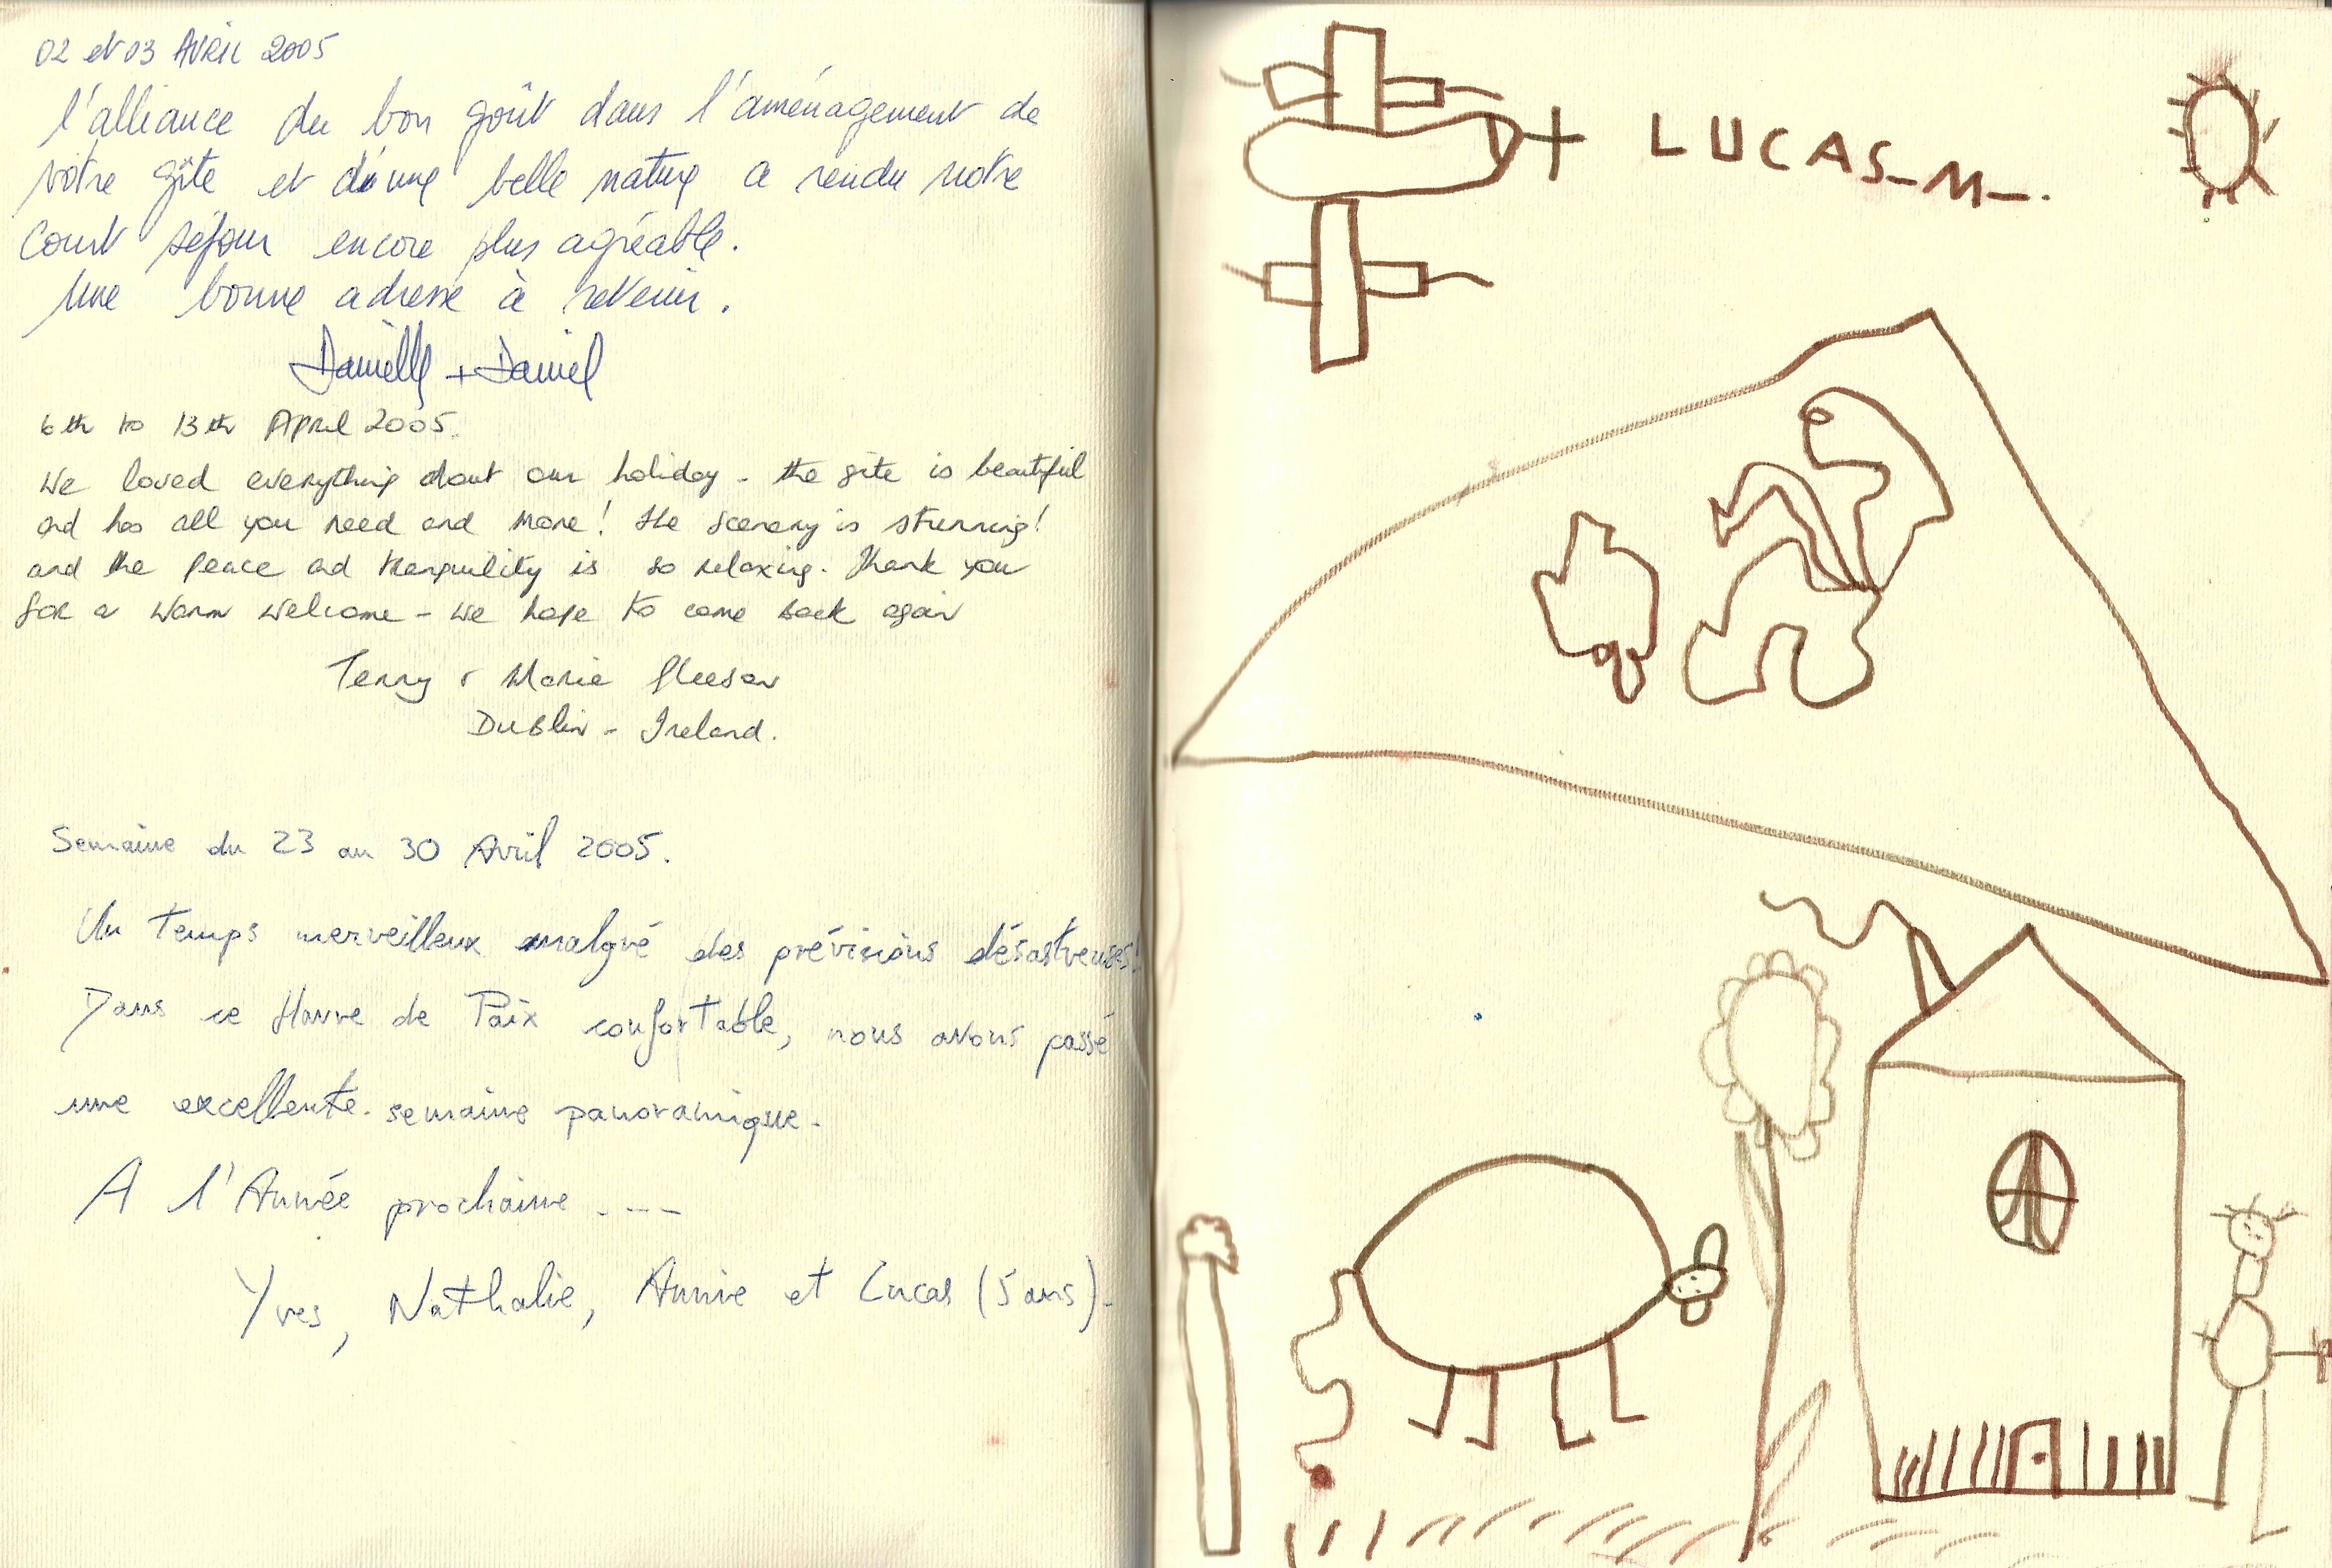 02 et 03 Avril 2005
l'alliance du bon goût dans l'aménagement de
votre gîte et d'une belle nature a rendu notre
court séjour encore plus agréable.
Une bonne adresse à revenir.
Danielle + Daniel
6th to 13th April 2005.
We loved everything about our holiday - the gite is beautiful
and has all you need and more! The scenery is stunning!
and the peace and tranquility is so relaxing. Thank you
for a warm welcome - we hope to come back again
Terry & Marie Gleeson
Dublin - Ireland.
Semaine du 23 au 30 Avril 2005.
Un temps merveilleux malgré des prévisions désastreuses!
Dans ce Havre de Paix confortable, nous avons passé
une excellente semaine panoramique.
A l'Année prochaine ----
Yves, Nathalie, Annie et Lucas (5 ans).
LUCAS-M-.